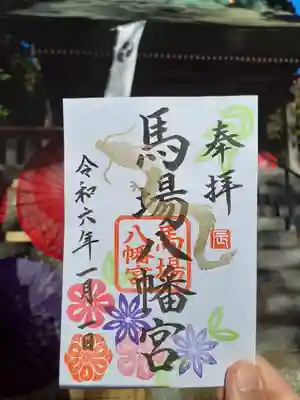 奉拝
馬場八幡宮
馬場
八幡宮
辰
令和六年一月一日